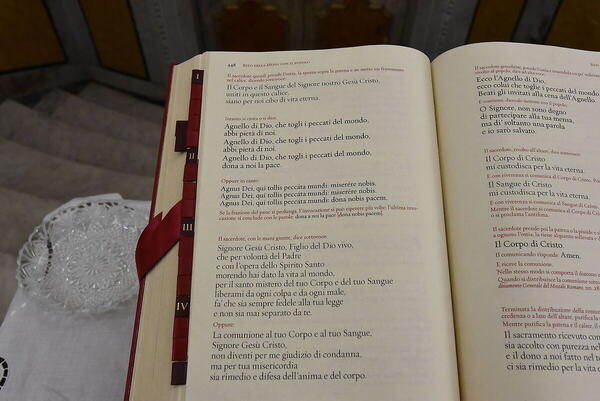 448 Rito della Messa con il popolo
Il sacerdote quindi prende l'ostia, la spezza sopra la patena e ne mette un frammento
nel calice, dicendo sottovoce:
Il Corpo e il Sangue del Signore nostro Gesù Cristo,
uniti in questo calice,
siano per noi cibo di vita eterna.
Intanto si canta o si dice:
Agnello di Dio, che togli i peccati del mondo,
abbi pietà di noi.
Agnello di Dio, che togli i peccati del mondo,
abbi pietà di noi.
Agnello di Dio, che togli i peccati del mondo,
dona a noi la pace.
Oppure in canto:
Agnus Dei, qui tollis peccáta mundi: miserére nobis.
Agnus Dei, qui tollis peccáta mundi: miserére nobis.
Agnus Dei, qui tollis peccáta mundi: dona nobis pacem.
Se la frazione del pane si prolunga, l'invocazione si può ripetere più volte; l'ultima invo-
cazione si conclude con le parole: dona a noi la pace [dona nobis pacem].
Il sacerdote, con le mani giunte, dice sottovoce:
Signore Gesù Cristo, Figlio del Dio vivo,
che per volontà del Padre
e con l'opera dello Spirito Santo
morendo hai dato la vita al mondo,
per il santo mistero del tuo Corpo e del tuo Sangue
liberami da ogni colpa e da ogni male,
fa' che sia sempre fedele alla tua legge
e non sia mai separato da te.
Oppure:
La comunione al tuo Corpo e al tuo Sangue,
Signore Gesù Cristo,
non diventi per me giudizio di condanna,
ma per tua misericordia
sia rimedio e difesa dell'anima e del corpo.
I
II
III
IV
Rito della Messa con
Il sacerdote genuflette, prende l'ostia
rivolto al popolo, dice ad alta voce:
Ecco l'Agnello di Dio,
ecco colui che toglie i peccati del mondo
Beati gli invitati alla cena dell'Agnello.
E continua, dicendo insieme con il popolo:
O Signore, non sono degno
di partecipare alla tua mensa,
ma di' soltanto una parola
e io sarò salvato.
Il sacerdote, rivolto all'altare, dice sottovoce:
Il Corpo di Cristo
mi custodisca per la vita eterna.
E con riverenza si comunica al Corpo di Cristo.
Il Sangue di Cristo
mi custodisca per la vita eterna.
E con riverenza si comunica al Sangue di Cristo.
Mentre il sacerdote si comunica al Corpo di Cristo,
o si proclama l'antifona.
Il sacerdote prende poi la patena o la pisside
a ognuno l'ostia, la tiene alquanto sollevata
Il Corpo di Cristo.
Il comunicando risponde: Amen.
E riceve la comunione.
Nello stesso modo si comporta il diacono
Quando si distribuisce la comunione
dinamento Generale del Messale Romano,
Terminata la distribuzione della
credenza o a lato dell'altare, purifica la
Mentre purifica la patena e il calice, il
Il sacramento ricevuto con
sia accolto con purezza nel
e il dono a noi fatto nel
ci sia rimedio per la vita